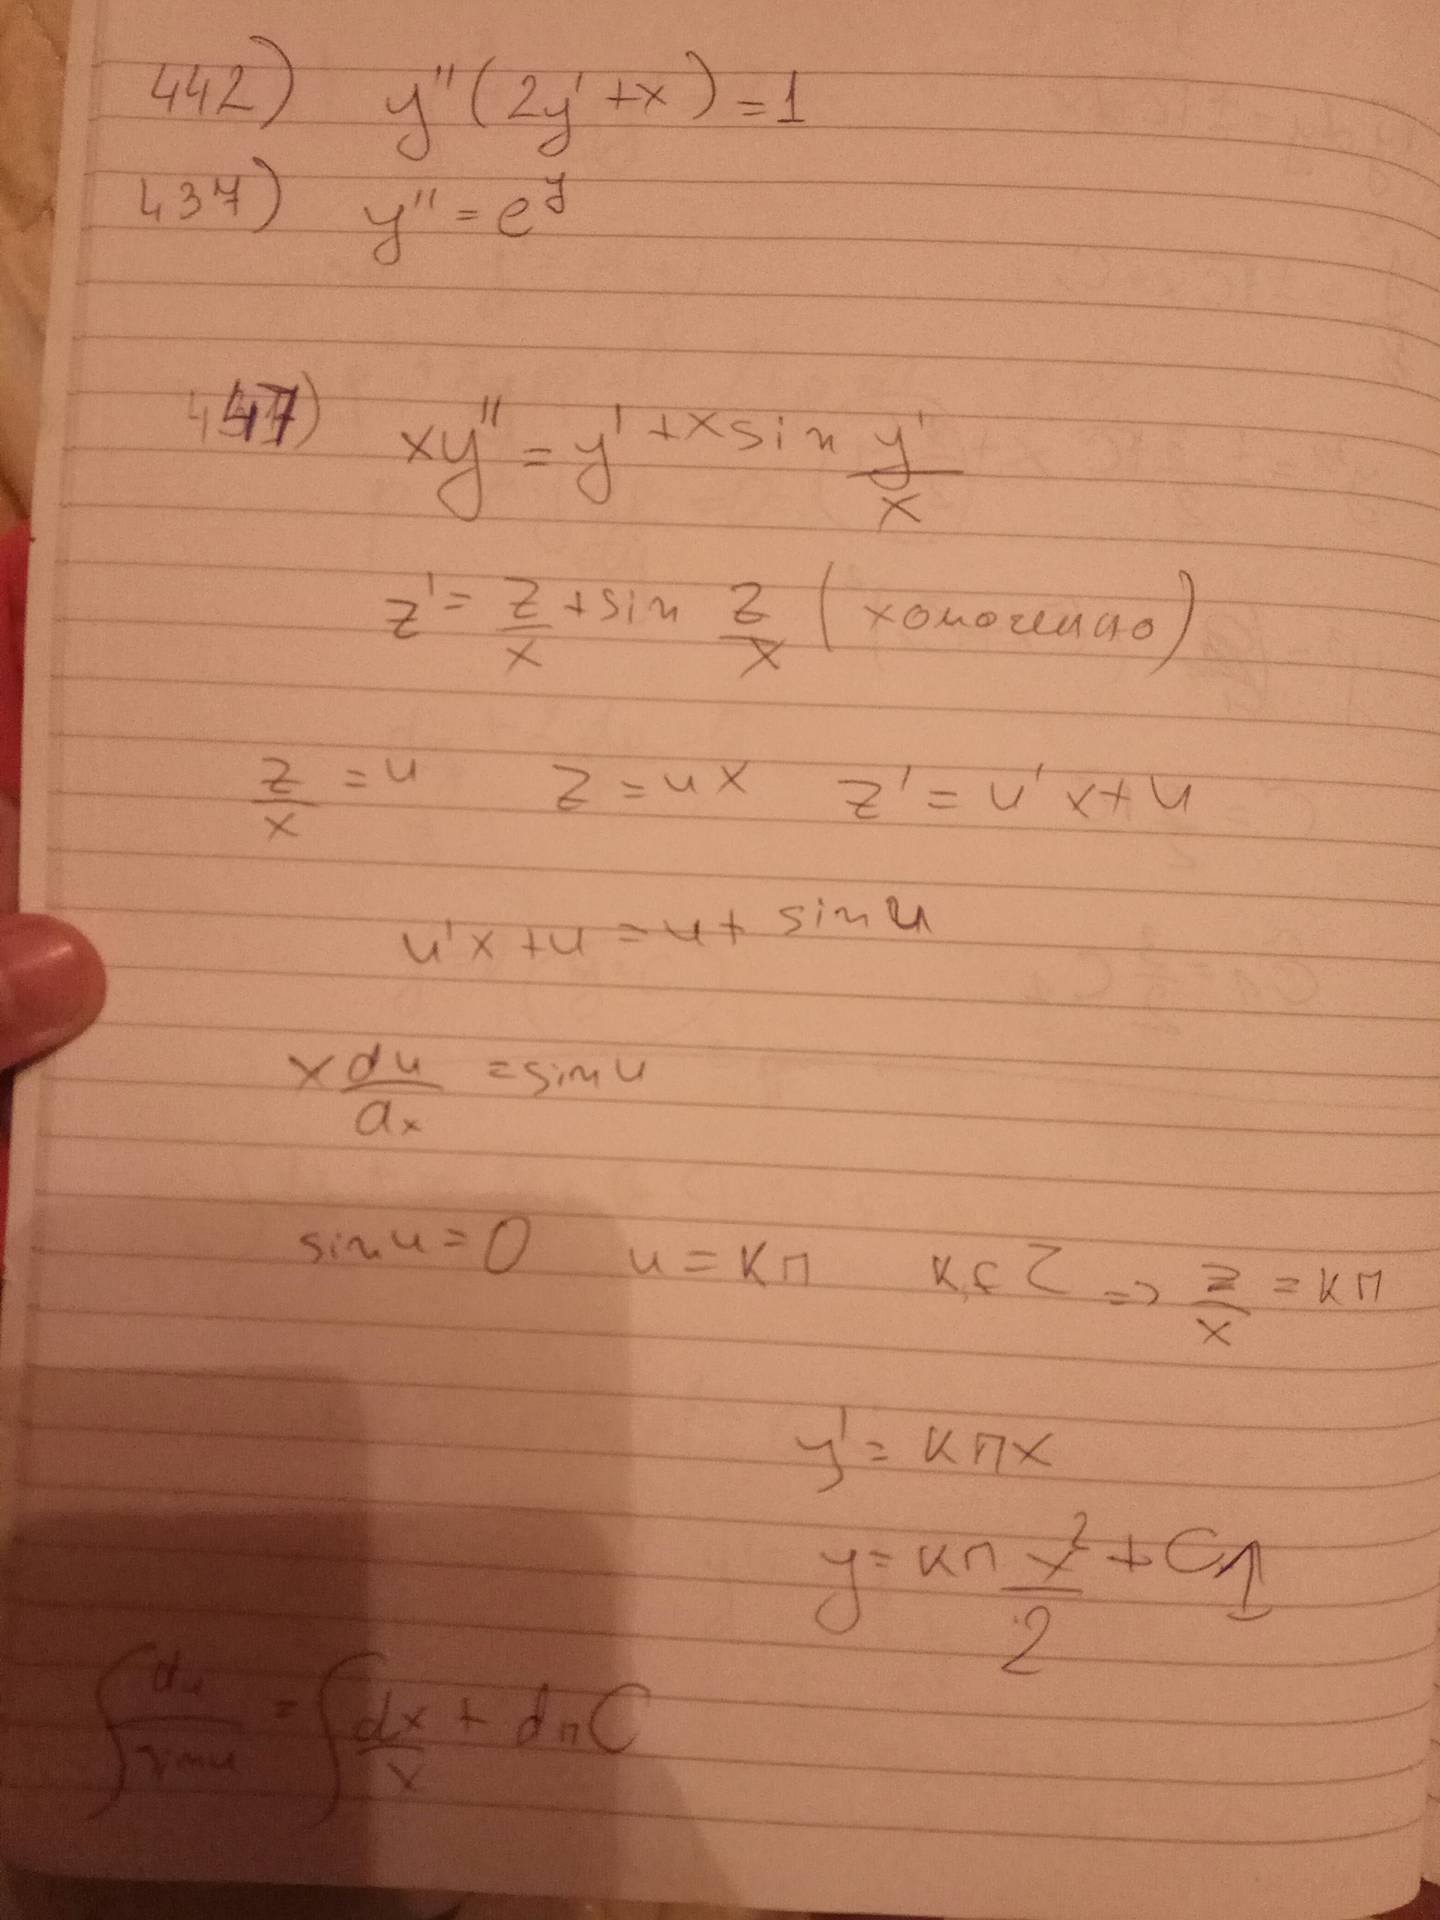 442) y''(2y'+x)=1
437) y''=e^y
447) xy''=y'+x sin y'/x
z'=z/x+sin z/x (хомогенно)
z/x=u z=ux z'=u'x+u
u'x+u=u+sin u
x du/dx=sin u
sin u=0 u=кπ к∈Z => z/x=кπ
y'=кπx
y=кπ x²/2+C1
∫du/sin u=∫dx/x+lnC